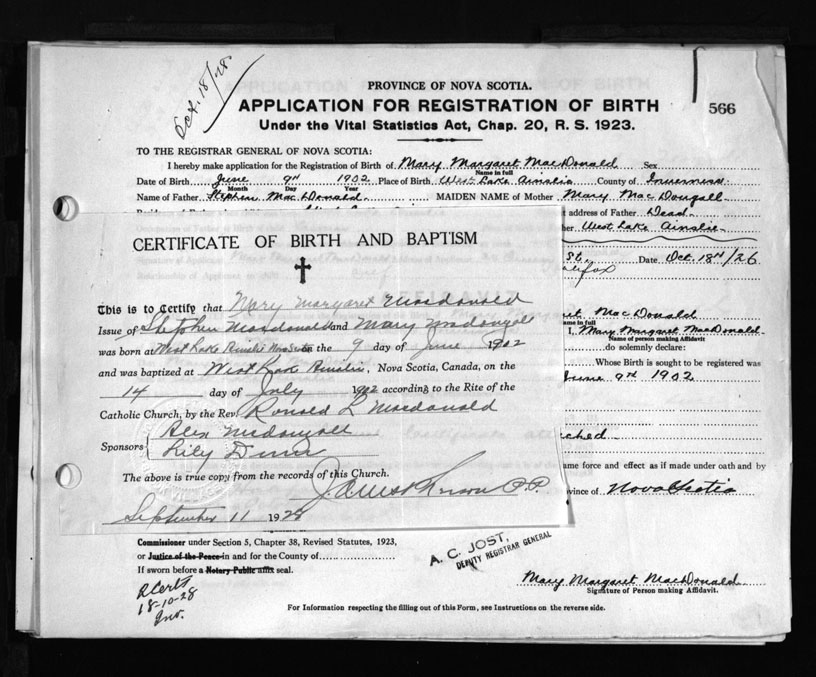 Oct. 18/28.
PROVINCE OF NOVA SCOTIA.
APPLICATION FOR REGISTRATION OF BIRTH
566
Under the Vital Statistics Act, Chap. 20, R. S. 1923.
TO THE REGISTRAR GENERAL OF NOVA SCOTIA:
I hereby make application for the Registration of Birth of Mary Margaret MacDonald Sex
Name in full
Date of Birth June 9th 1902 Place of Birth West Lake Ainslie County of Inverness
Month Day Year
Name of Father Stephen MacDonald MAIDEN NAME of Mother Mary MacDougall
address of Father Dead
West Lake Ainslie
St. Date Oct. 18th/26
Halifax
CERTIFICATE OF BIRTH AND BAPTISM
This is to Certify that Mary Margaret Macdonald
Issue of Stephen Macdonald and Mary Mcdougall
was born at West Lake Ainslie Nova Scotia on the 9 day of June 1902
and was baptized at West Lake Ainslie, Nova Scotia, Canada, on the
14 day of July 1902 according to the Rite of the
Catholic Church, by the Rev. Ronald L Macdonald
Sponsors Alex Mcdougall
Lily
The above is true copy from the records of this Church.
P.P.
September 11 1928
MacDonald
me in full
I, Mary Margaret MacDonald
Name of person making Affidavit
do solemnly declare:
Whose Birth is sought to be registered was
June 9th 1902
ched
ame force and effect as if made under oath and by
vince of Nova Scotia
Commissioner under Section 5, Chapter 38, Revised Statutes, 1923,
or Justice of the Peace in and for the County of
If sworn before a Notary Public affix seal.
A. C. JOST,
DEPUTY REGISTRAR GENERAL
18-10-28
Mary Margaret MacDonald
Signature of Person making Affidavit.
For Information respecting the filling out of this Form, see Instructions on the reverse side.